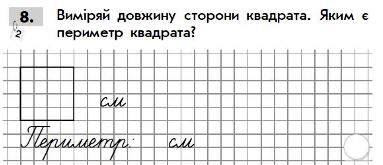 8. Виміряй довжину сторони квадрата. Яким є
периметр квадрата?
см
Периметр: см